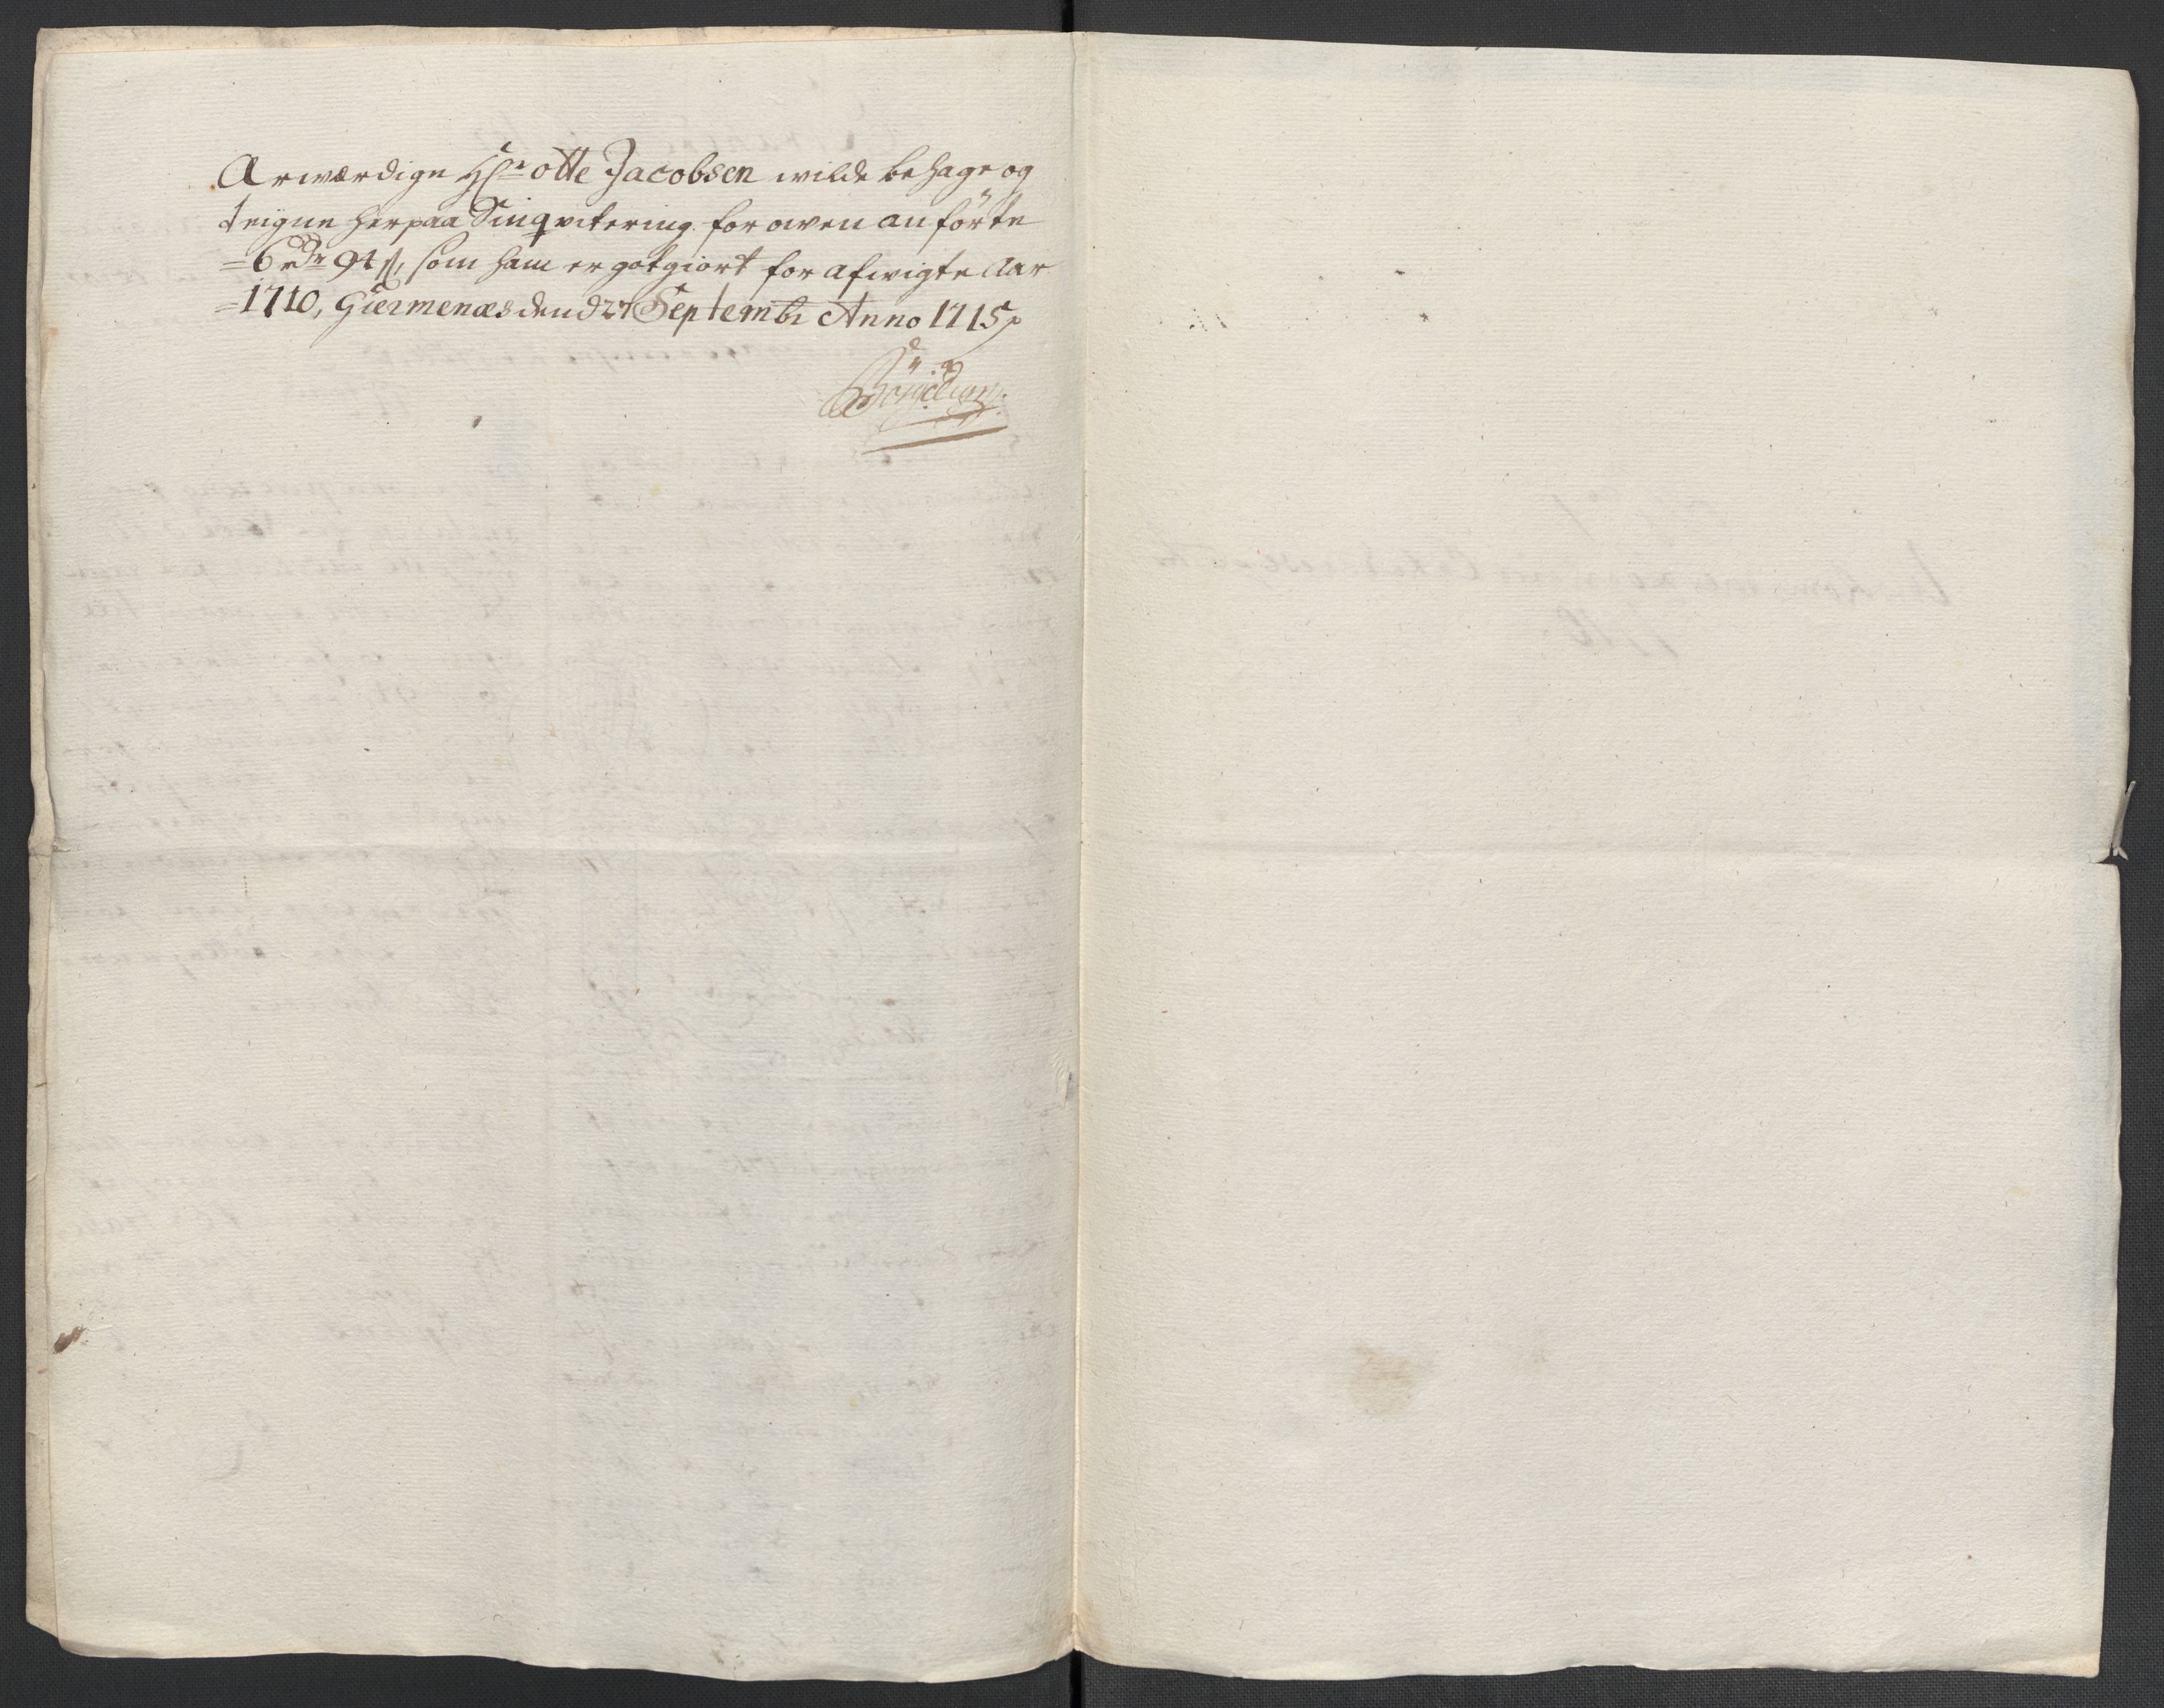 Ærwærdige Hr: otte Jacobsen wilde behage og
teigne herpaa Sin qvitering for owen anförte
=6 rdr 94 ß, som ham er gotgiort for afwigte Aar
=1710, Giermenæs den 27 Septembr Anno 1715